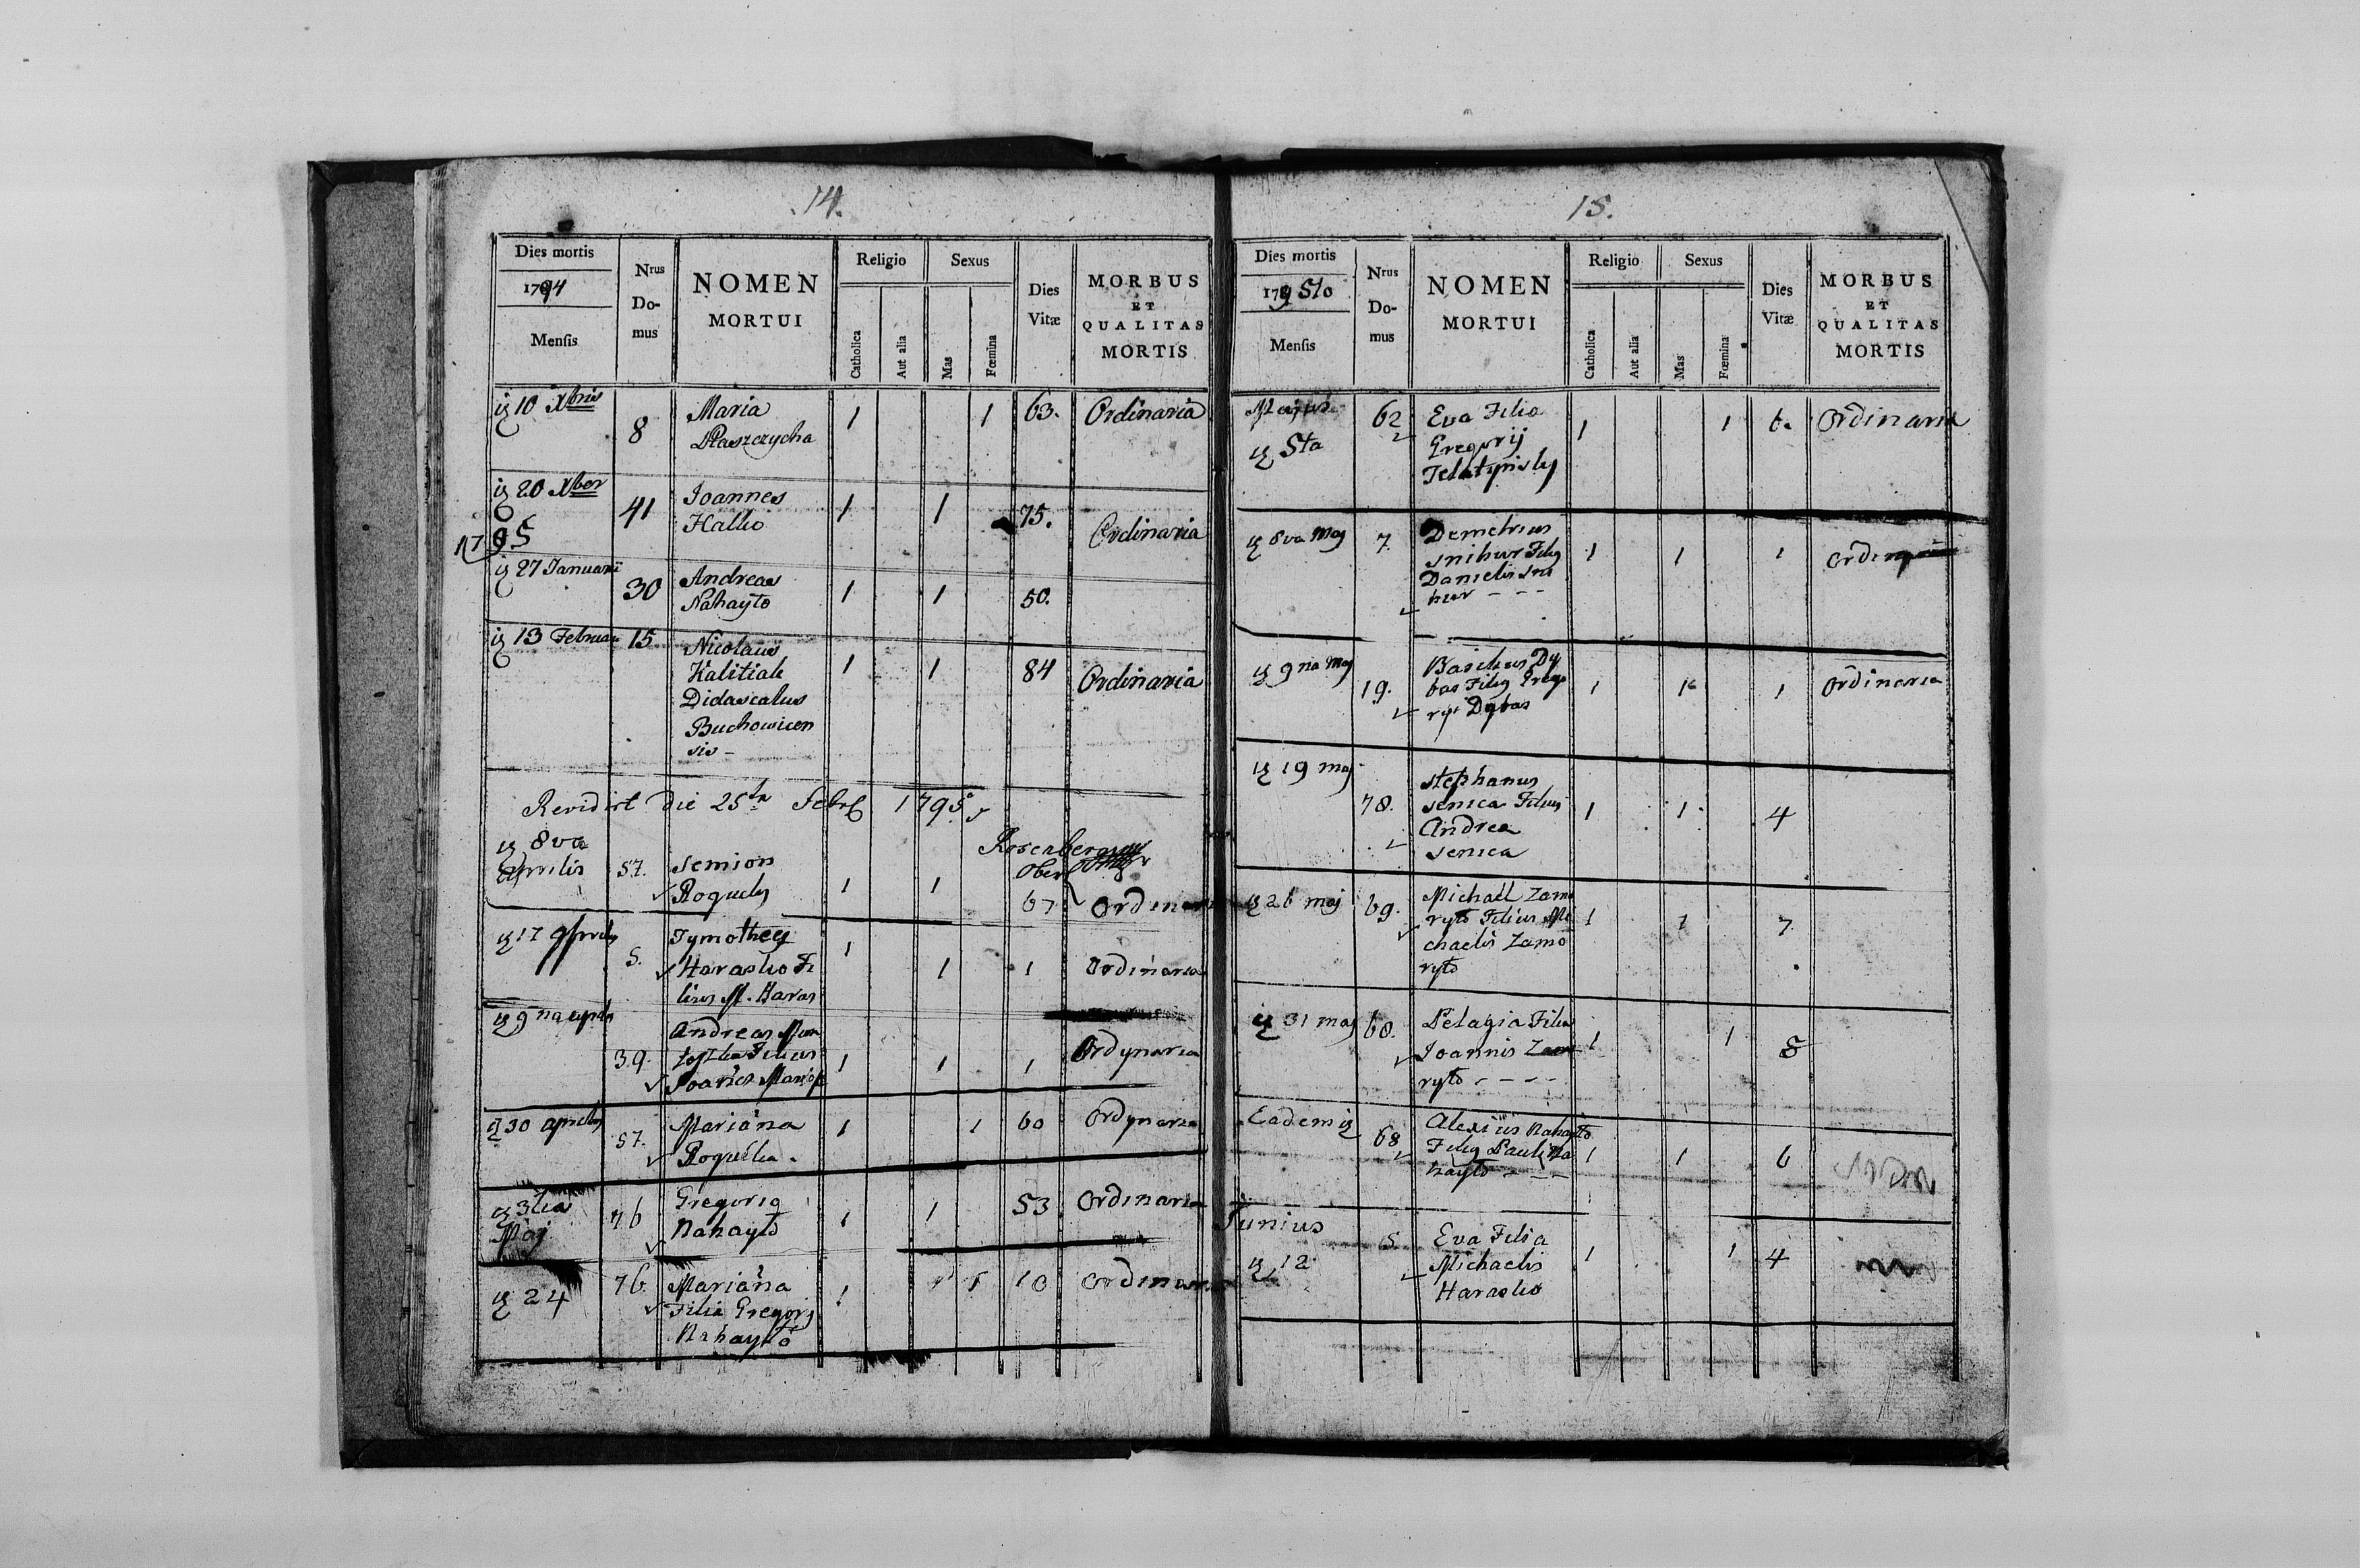 14.
Dies mortis
1794
Mensis
Nrus
Do-
mus
NOMEN
MORTUI
Religio
Catholica
Aut alia
Sexus
Mas
Fœmina
Dies
Vitæ
MORBUS
ET
QUALITAS
MORTIS
10 Xbris 8 Maria 1 1 63. Ordinaria
Płaszczycha
20 Xber 41 Joannes 1 1 75. Ordinaria
Halko
1795
27 Januarii 30 Andreas 1 1 50.
Nahayło
13 Februar 15 Nicolaus 1 1 84 Ordinaria
Kalitiak
Didascalus
Buchowicen
sis -
Revidirt die 25ta Febr 1795
Rosenberg
Ober
8va
Aprilis 57. Semion 1 1 67 Ordinaria
Rogucky
17 Aprilis 5. Tymothey 1 1 1 Ordinaria
Harasko Fi
lius M. Haras
9na aprilis 39. Andreas 1 1 1 Ordynaria
Filius
30 aprilis 57. Mariana 1 1 60 Ordynaria
3tia
Maj 76 Gregorig 1 1 53 Ordinaria
Nahayło
24 76. Mariana 1 1 10 Ordinaria
Filia Gregorij
Nahayło
15.
Dies mortis
1795to
Mensis
Nrus
Do-
mus
NOMEN
MORTUI
Religio
Catholica
Aut alia
Sexus
Mas
Fœmina
Dies
Vitæ
MORBUS
ET
QUALITAS
MORTIS
Majus 62 Eva Filia 1 1 6. Ordinaria
5ta Gregorij
8va Maj 7. Demetrius 1 1 1
Snihur Filg
Danielis Sni
hur - - -
9na Maj 19. Basilius Dy 1 1 1 Ordinaria
bas Filg Grego
ryi Dybas
19 maj 78. Stephanus 1 1 4
Senica Filius
Andrea
Senica
26 maj 69. Michaël Zamo 1 1 7
ryło Filius Mi
chaelis Zamo
ryło
31 maj 68. Pelagia Filia 1 1 8
Joannis Zamo
ryło - - - -
Eadem 68 Alexius Nahayło 1 1 6
Filig Pauli Na
hayło - - -
Junius
12 5 Eva Filia 1 1 4
Michaelis
Harasko